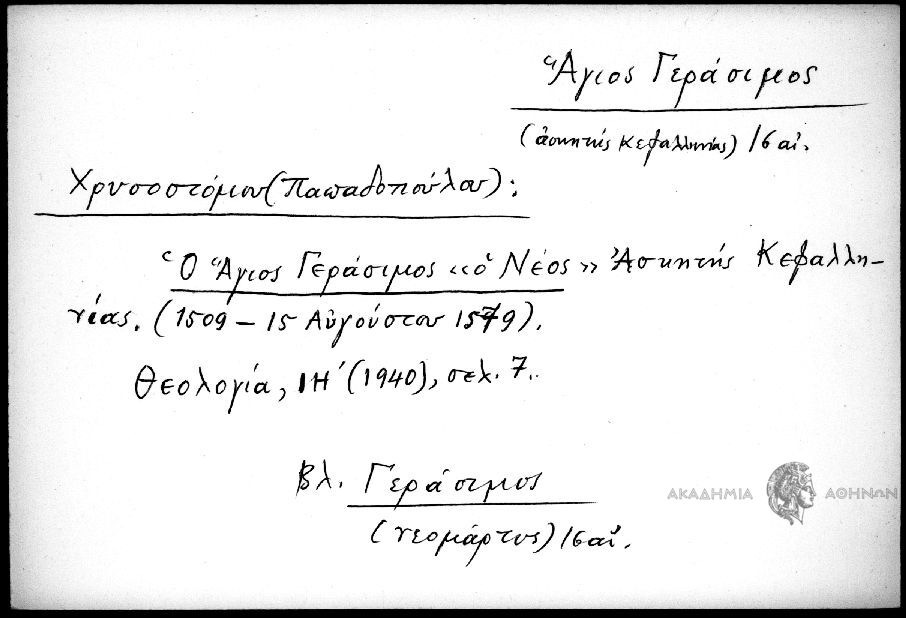 Ἅγιος Γεράσιμος
(ἀσκητής Κεφαλληνίας) 16 αἰ.
Χρυσοστόμου (Παπαδοπούλου):
Ὁ Ἅγιος Γεράσιμος «ὁ Νέος» Ἀσκητής Κεφαλλη-
νίας. (1509 – 15 Αὐγούστου 1579).
Θεολογία, ΙΗ´ (1940), σελ. 7..
Βλ. Γεράσιμος
(νεομάρτυς) 16 αἰ.
ΑΚΑΔΗΜΙΑ ΑΘΗΝΩΝ